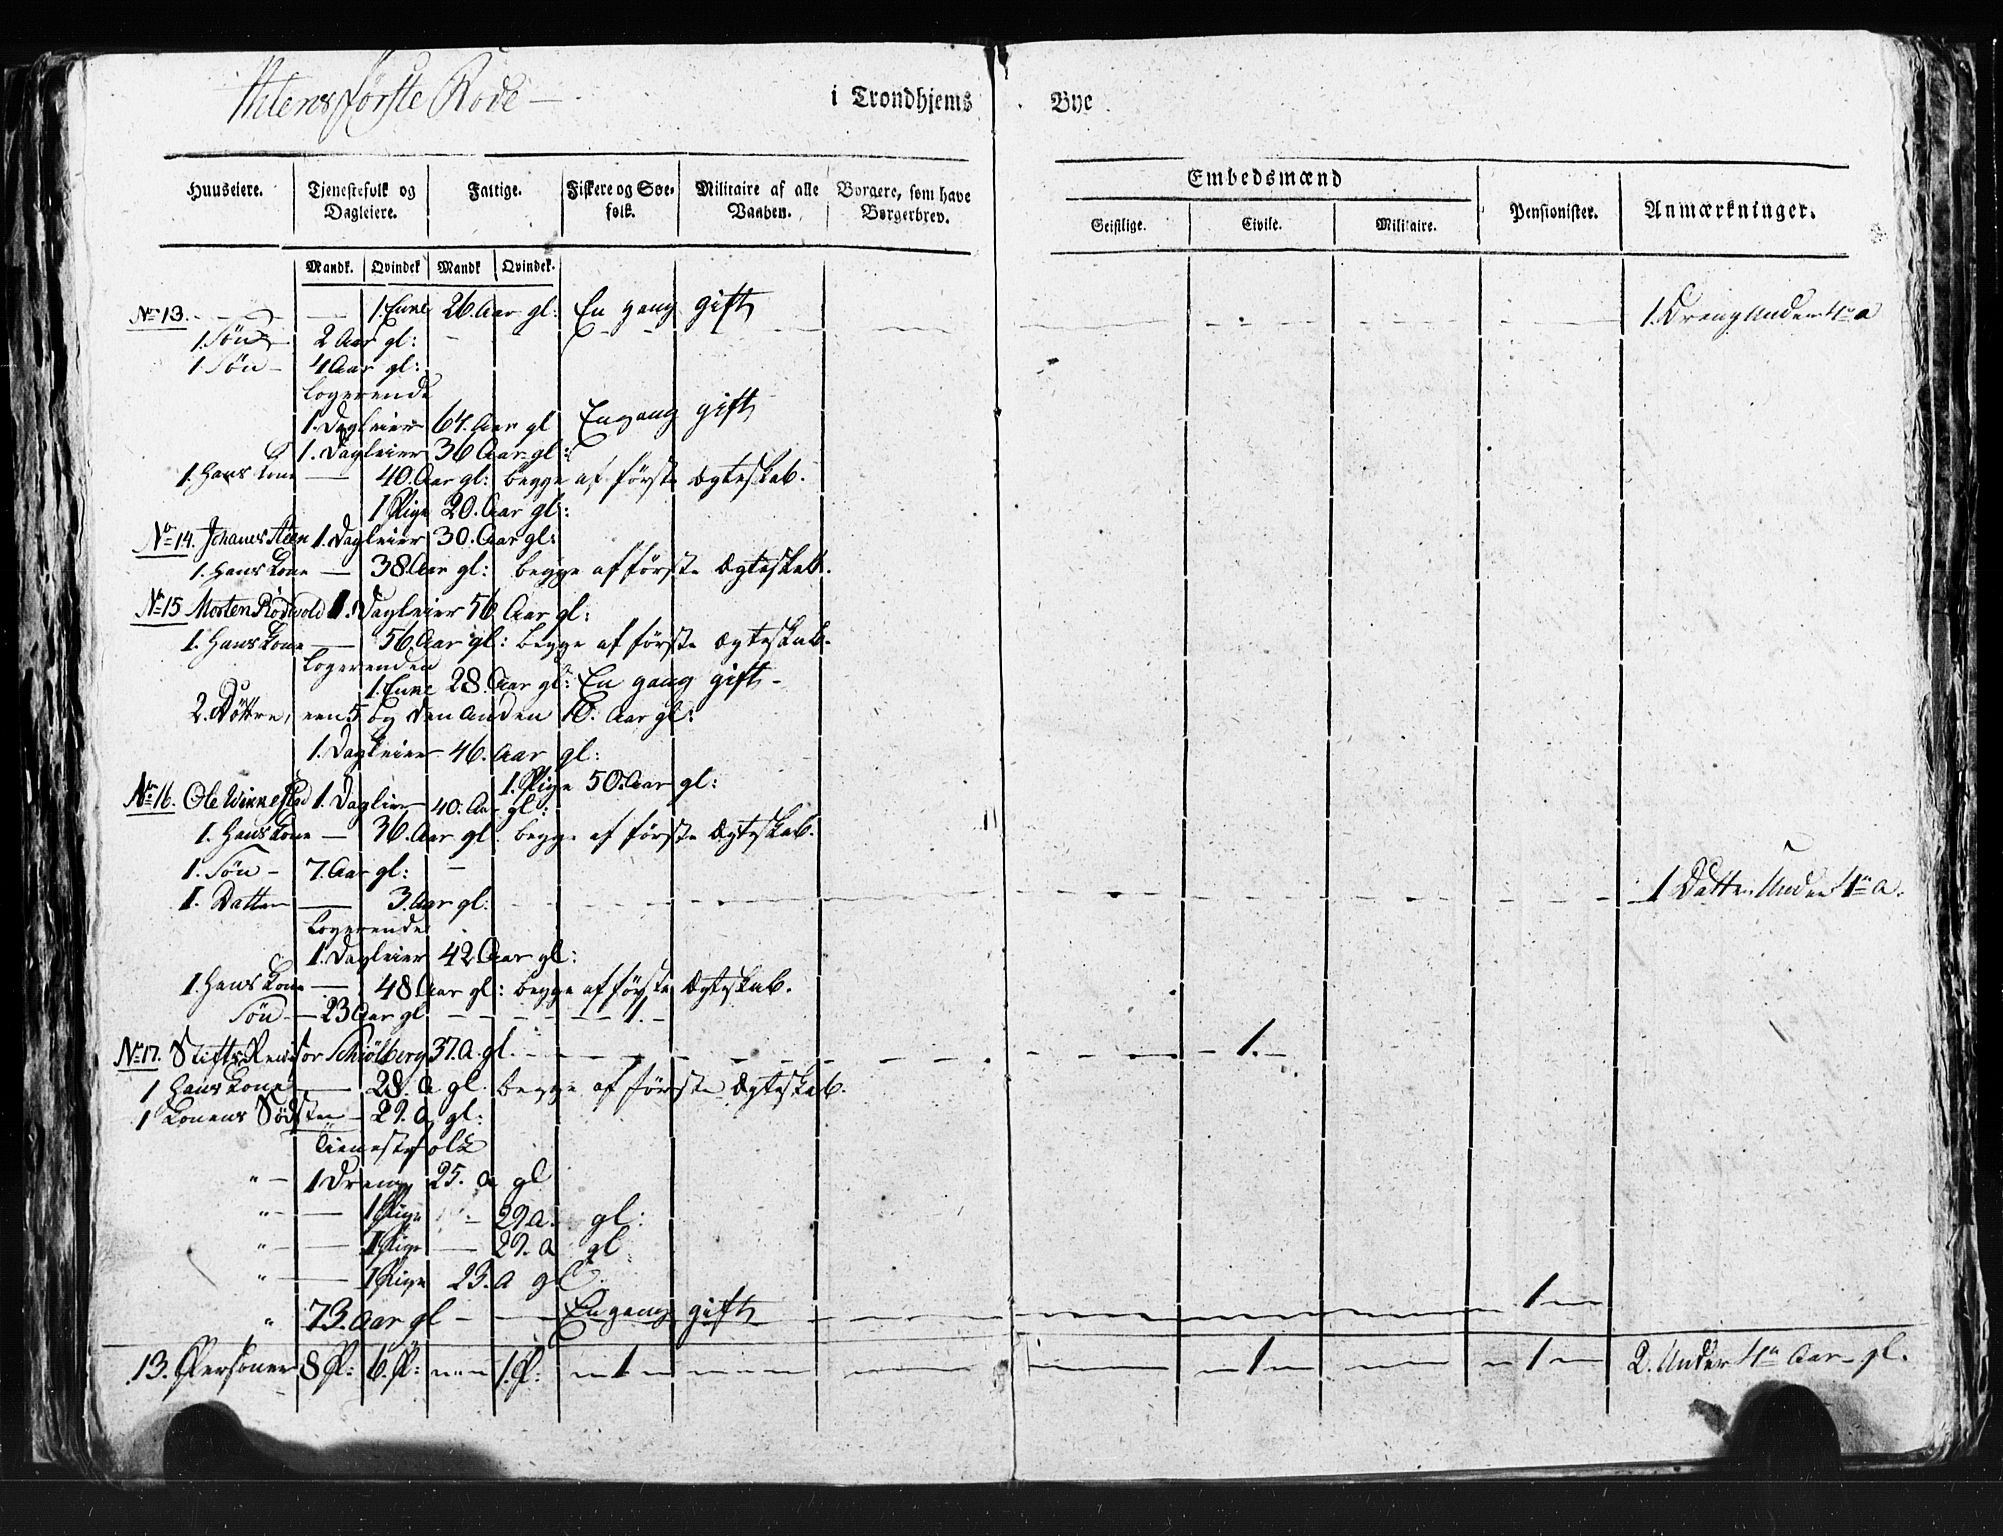 Ihlens første Rode — i Trondhjems Bye
Huuseiere. Tjenestefolk og Dagleiere. Fattige. Fiskere og Søefolk. Militaire af alle Vaaben. Borgere, som have Borgerbrev. Embedsmænd Pensionister. Anmærkninger.
Geistlige. Civile. Militaire.
Mandk. Qvindek Mandk Qvindek.
No 13. — 1. Enke 26. Aar gl: En gang gift 1. Dreng Under 4re a
1. Søn 2 Aar gl: —
1 Søn — 4 Aar gl:
Logerende
1. Dagleier 64. Aar gl En gang gift
1. Dagleier 36 Aar gl:
1. Hans Kone — 40. Aar gl: begge af første Ægteskab.
1 Pige 20. Aar gl:
No 14. Johanes Steen 1. Dagleier 30. Aar gl:
1. Hans Kone — 38. Aar gl: begge af første Ægteskab.
No 15 Morten Rødvold 1. Dagleier 56 Aar gl:
1. Hans Kone — 56 Aar gl: begge af første Ægteskab.
Logerenden
1. Enke 28. Aar gl: En gang gift —
2. Døttre, een 5 og den anden 10. Aar gl:
1. Dagleier 46. Aar gl:
1. Pige 50. Aar gl:
No 16. Ole Winnestad 1. Daglier 40. Aar gl:
1. Hans Kone — 36. Aar gl. begge af første Ægteskab.
1. Søn — 7. Aar gl: —
1. Datter — 3. Aar gl: 1 Datter Under 4re a.
Logerende
1. Dagleier 42 Aar gl:
1. Hans Kone — 48. Aar gl: begge af første Ægteskab.
Søn — 23 Aar gl — 1. —
No 17. Stifts Revisor Schiølberg 37. a. gl. — 1. —
1 Hans Kone — 28. a gl. begge af første Ægteskab.
1 Konens Søster — 29. a gl:
Tienestefolk
" — 1 Dreng 25. a gl
" — 1 Pige — 29 a. gl:
" — 1 Pige — 29. a gl
" — 1 Pige 23. a gl.
" 73. Aar gl — En gang gift — 1 —
13. Personer 8 P: 6. P: 1. P: — 1 — 1 — 1 — 2. Under 4re Aar gl.